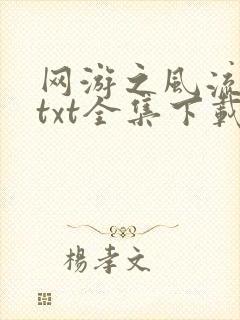 网游之风流
txt全集下载
楊孝文